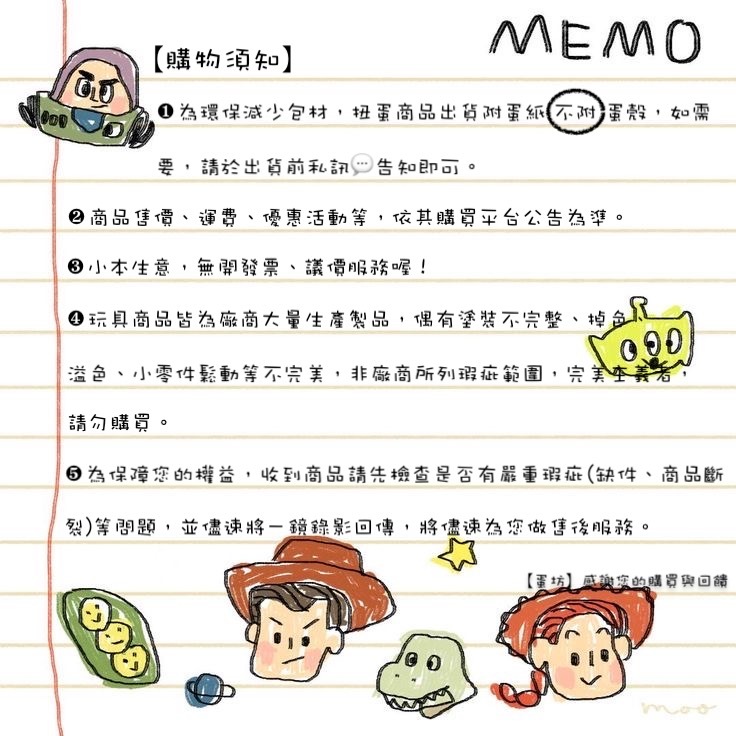 MEMO
【購物須知】
❶為環保減少包材，扭蛋商品出貨附蛋紙不附蛋殼，如需
要，請於出貨前私訊💬告知即可。
❷商品售價、運費、優惠活動等，依其購買平台公告為準。
❸小本生意，無開發票、議價服務喔！
❹玩具商品皆為廠商大量生產製品，偶有塗裝不完整、掉色、
溢色、小零件鬆動等不完美，非廠商所列瑕疵範圍，完美主義者，
請勿購買。
❺為保障您的權益，收到商品請先檢查是否有嚴重瑕疵(缺件、商品斷
裂)等問題，並儘速將一鏡錄影回傳，將儘速為您做售後服務。
【蛋坊】感謝您的購買與回饋
moo